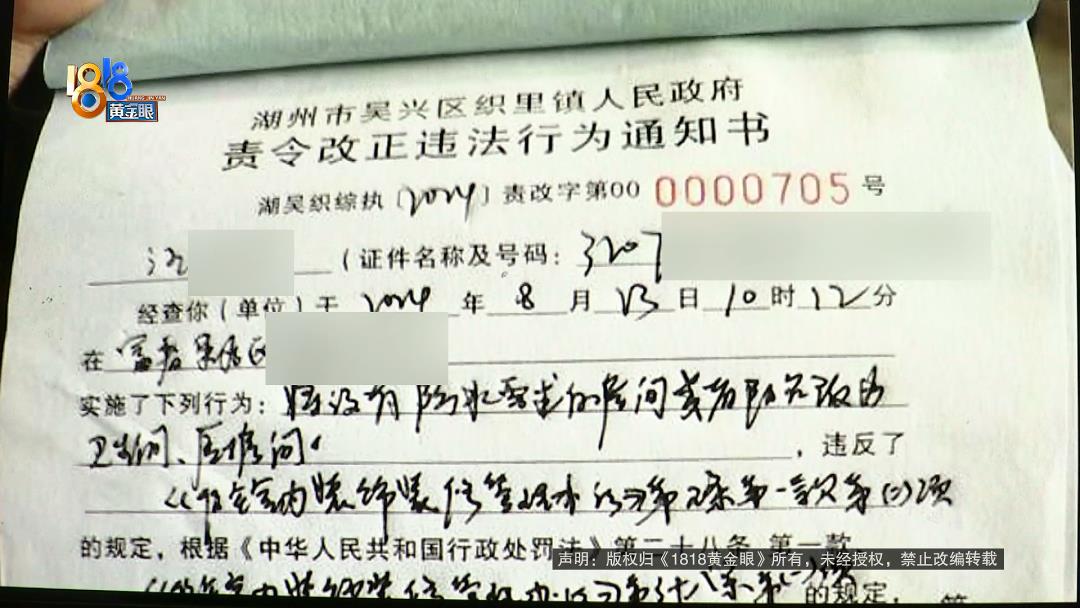 1818
黄金眼
湖州市吴兴区织里镇人民政府
责令改正违法行为通知书
湖吴织综执〔2024〕责改字第00 0000705号
(证件名称及号码: 3207
经查你(单位)于 2024 年 8 月 23 日 10 时 12 分
在 富春
实施了下列行为: 将没有防水要求的房间或者阳台改为
卫生间、厨房间。 , 违反了
《住宅室内装饰装修管理办法》第五条第一款第(二)项
的规定, 根据《中华人民共和国行政处罚法》第二十八条 第一款
声明：版权归《1818黄金眼》所有，未经授权，禁止改编转载
的规定,